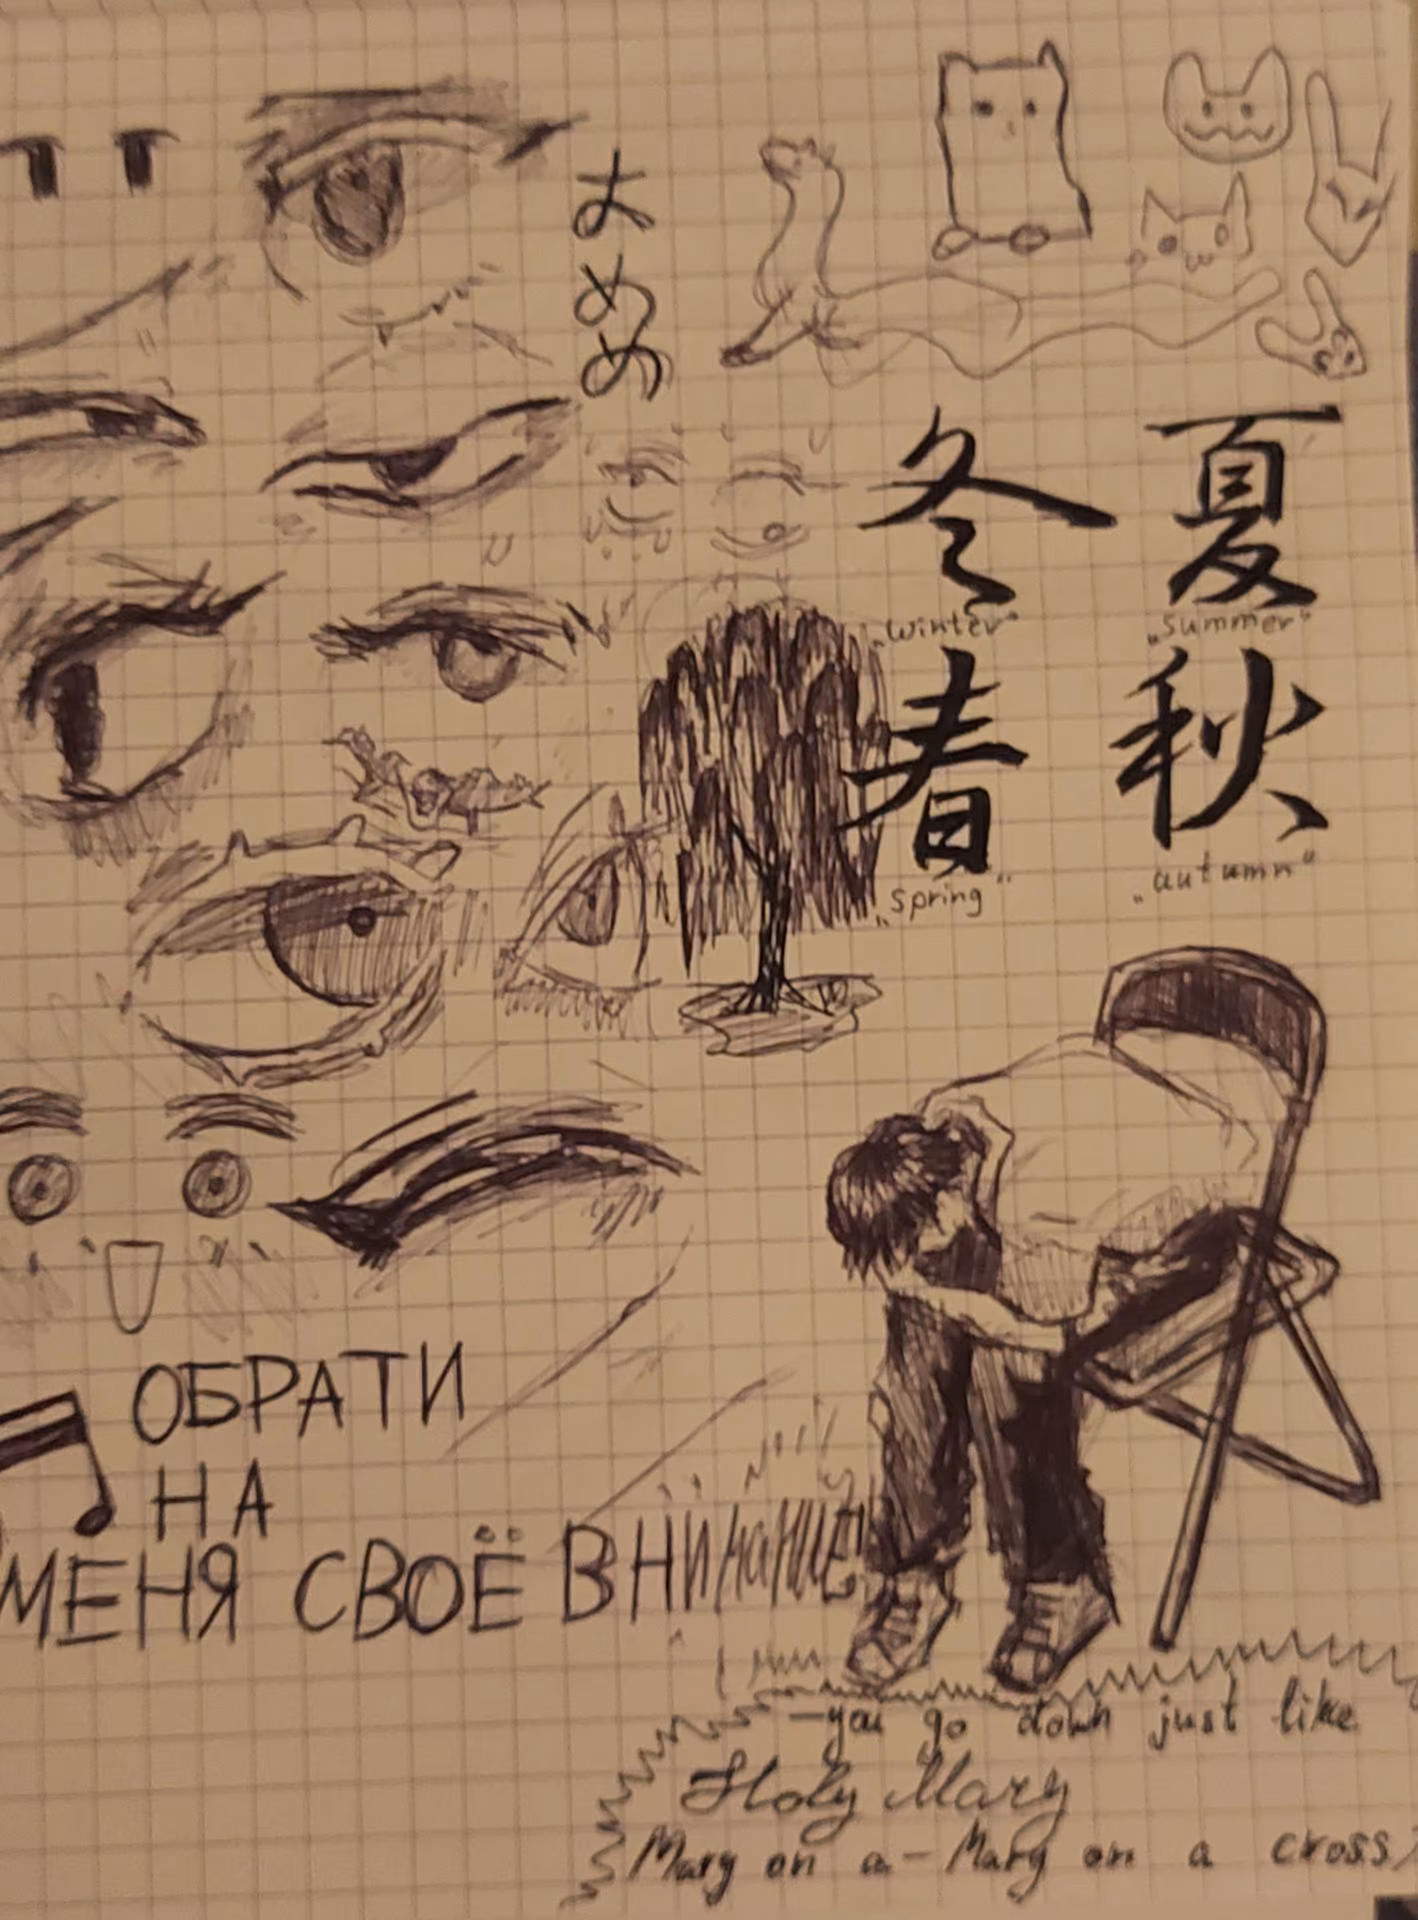 よ
め
め
冬
夏
„winter“
„summer“
春
秋
„spring“
„autumn“
ОБРАТИ
НА
МЕНЯ СВОЁ ВНИМАНИЕ
–you go down just like
Holy Mary
Mary on a– Mary on a cross